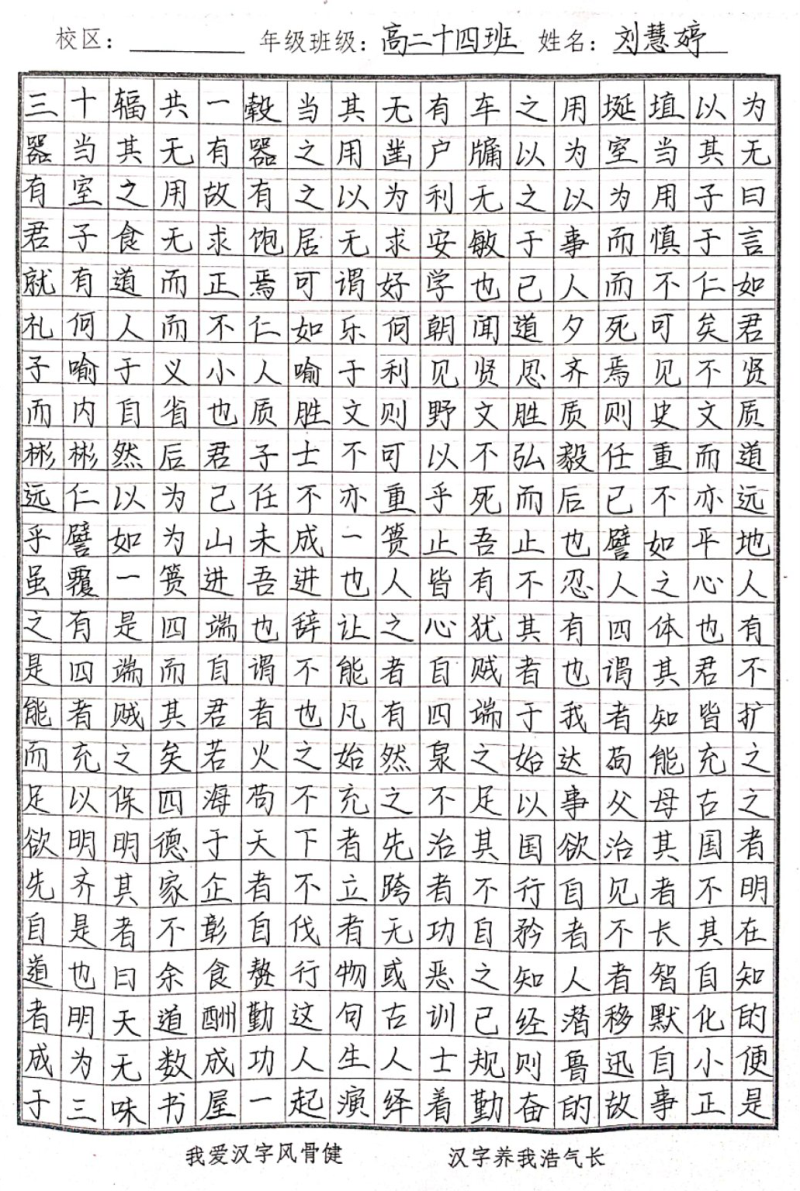 校区： 年级班级：高二十四班 姓名：刘慧婷
三十辐共一毂当其无有车之用埏埴以为
器当其无有器之用凿户牖以为室当其无
有室之用故有之以为利无之以为用子曰
君子食无求饱居无求安敏于事而慎于言
就有道而正焉可谓好学也已人而不仁如
礼何人而不仁如乐何朝闻道夕死可矣君
子喻于义小人喻于利见贤思齐焉见不贤
而内自省也质胜文则野文胜质则史文质
彬彬然后君子士不可以不弘毅任重而道
远仁以为己任不亦重乎死而后已不亦远
乎譬如为山未成一篑止吾止也譬如平地
虽覆一篑进吾进也人皆有不忍人之心人
之有是四端也辞让之心犹其有四体也有
是四端而自谓不能者自贼者也谓其君不
能者贼其君者也凡有四端于我者知皆扩
而充之矣若火之始然泉之始达苟能充之
足以保四海苟不充之不足以事父母古之
欲明明德于天下者先治其国欲治其国者
先齐其家企者不立跨者不行自见者不明
自是者不彰自伐者无功自矜者不长其在
道也曰余食赘行物或恶之知人者智自知
者明天道酬勤这句古训已经潜移默化的
成为无数成功人生人士规则鲁迅自小便
于三味书屋一起演绎着勤奋的故事正是
我爱汉字风骨健 汉字养我浩气长